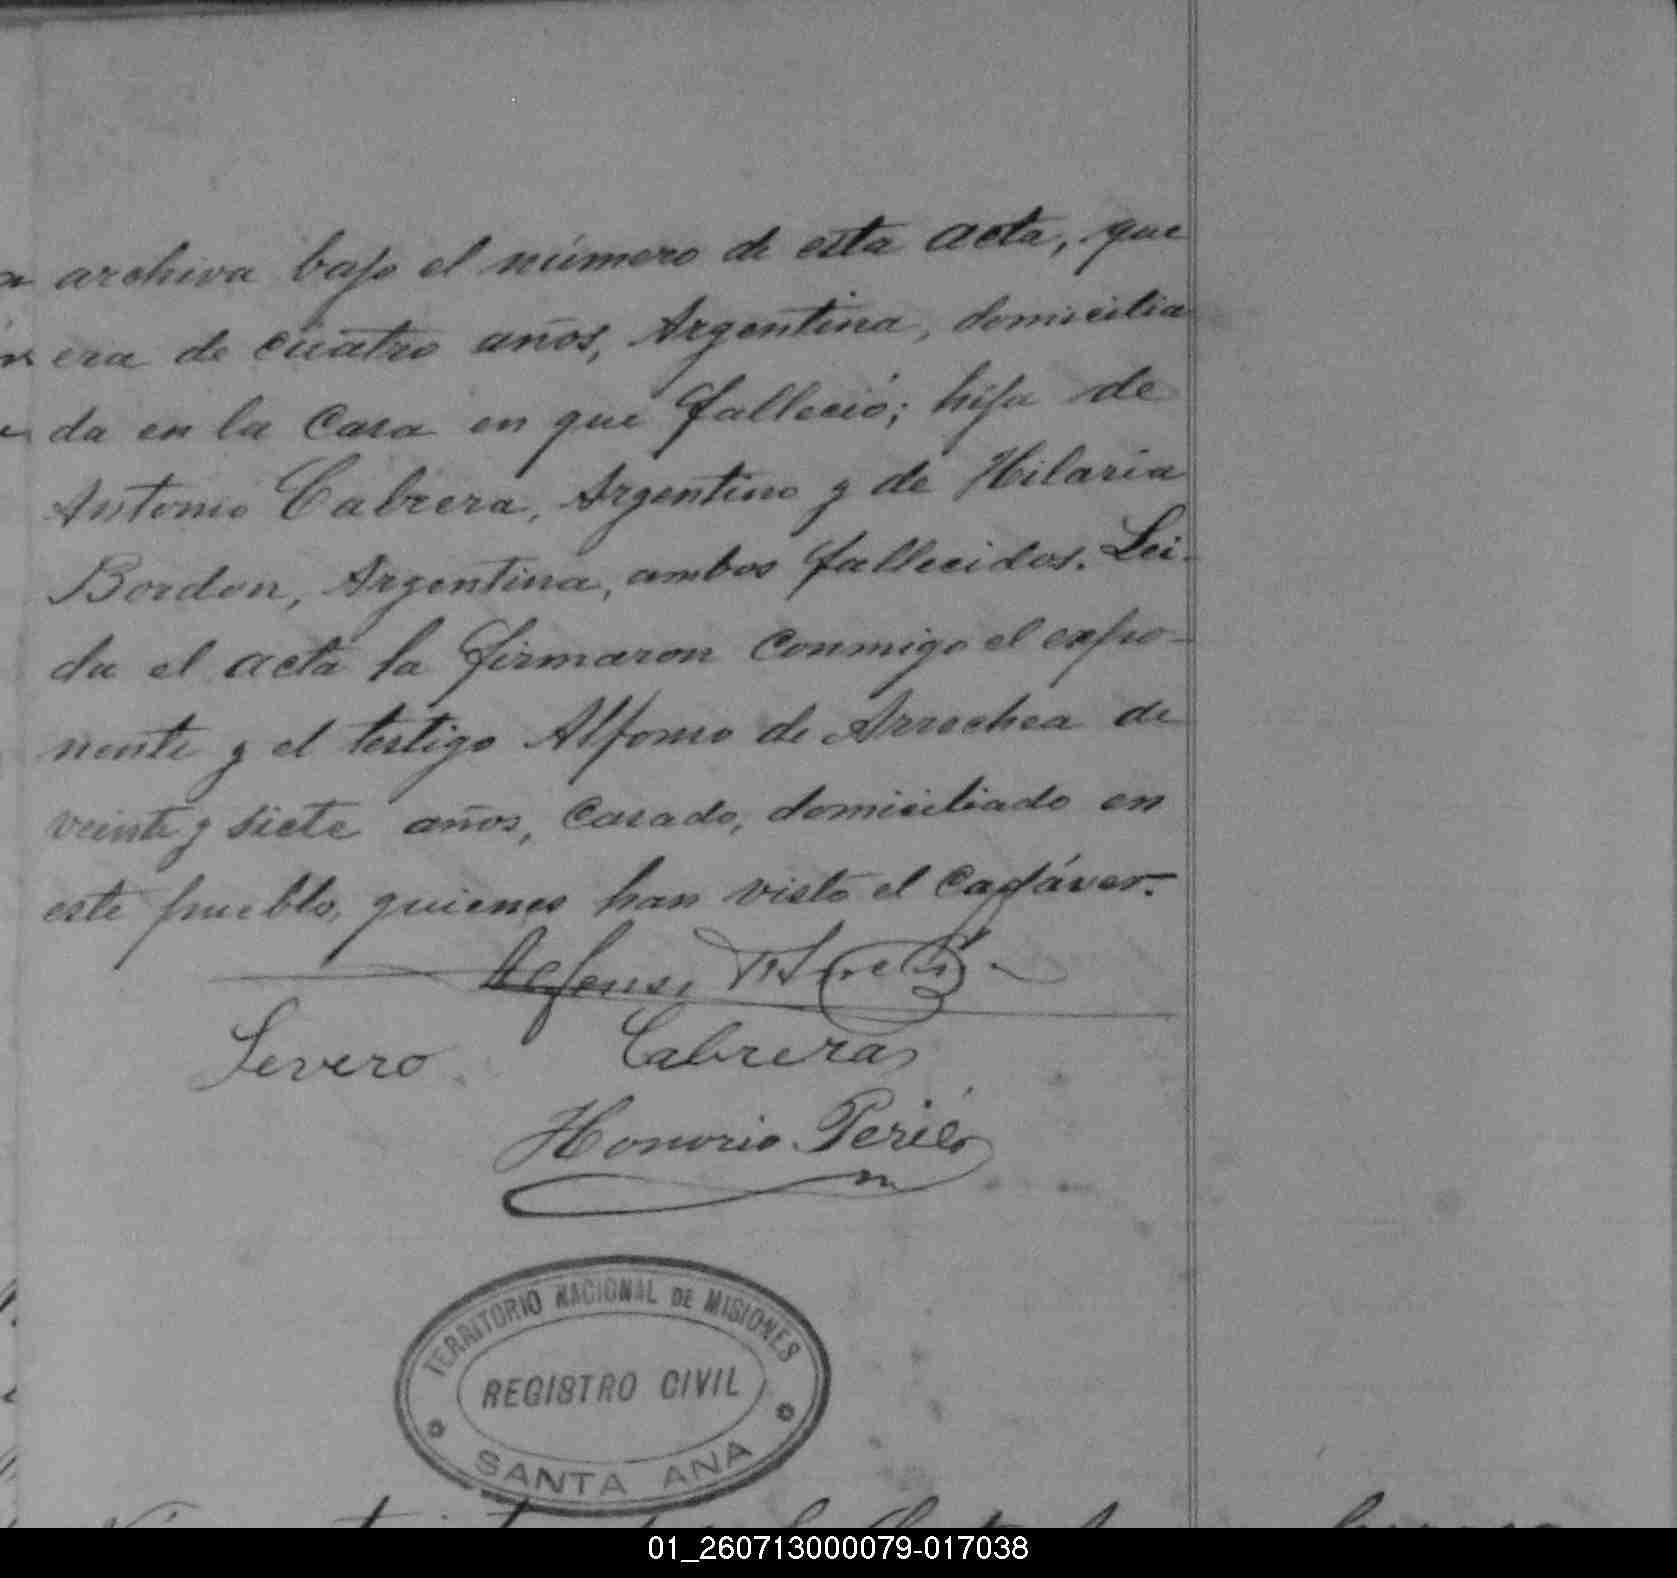 archiva bajo el número de esta acta, que
era de cuatro años, Argentina, domicilia
da en la casa en que falleció; hija de
Antonio Cabrera, Argentino y de Hilaria
Bordon, Argentina, ambos fallecidos. Lei-
da el acta la firmaron conmigo el expo-
nente y el testigo Alfonso de Arrechea de
veinte y siete años, casado, domiciliado en
este pueblo, quienes han visto el cadáver.
Alfonso
Severo Cabrera
Honorio
TERRITORIO NACIONAL DE MISIONES
REGISTRO CIVIL
SANTA ANA
01_260713000079-017038